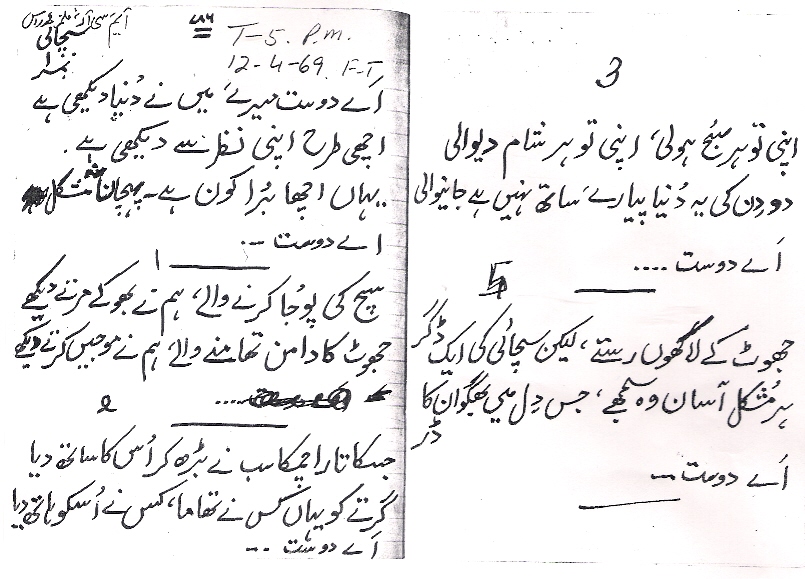 ایم سی آر، فلمز مدراس
۷۸۶
سچائی
T-5. P.m.
12-4-69 F.T.
نمبر ۱
اَے دوست میرے، میں نے دُنیا دیکھی ہے
اچھی طرح اپنی نظر سے دیکھی ہے
یہاں اچھا بُرا کون ہے۔ پہچاننا مشکل ہے
اے دوست ...
۱
سچ کی پوُجا کرنے والے، ہم نے بھوکے مرتے دیکھے
جھوٹ کا دامن تھامنے والے، ہم نے موجیں کرتے دیکھے
....
2
جسکا تارا چمکا سب نے بڑھ کر اُس کا ساتھ دیا
گرتے کو یہاں کس نے تھاما، کس نے اُسکو ہاتھ دیا
اَے دوست ...
3
اپنی تو ہر صبُح ہولی، اپنی تو ہر شام دیوالی
دو دِن کی یہ دُنیا پیارے ساتھ نہیں ہے جانیوالی
اَے دوست ....
جھوٹ کے لاکھوں رستے، لیکن سچائی کی ایک ڈگر
ہر مُشکل آسان وہ سمجھے، جس دِل میں بھگوان کا ڈر
اَے دوست ...